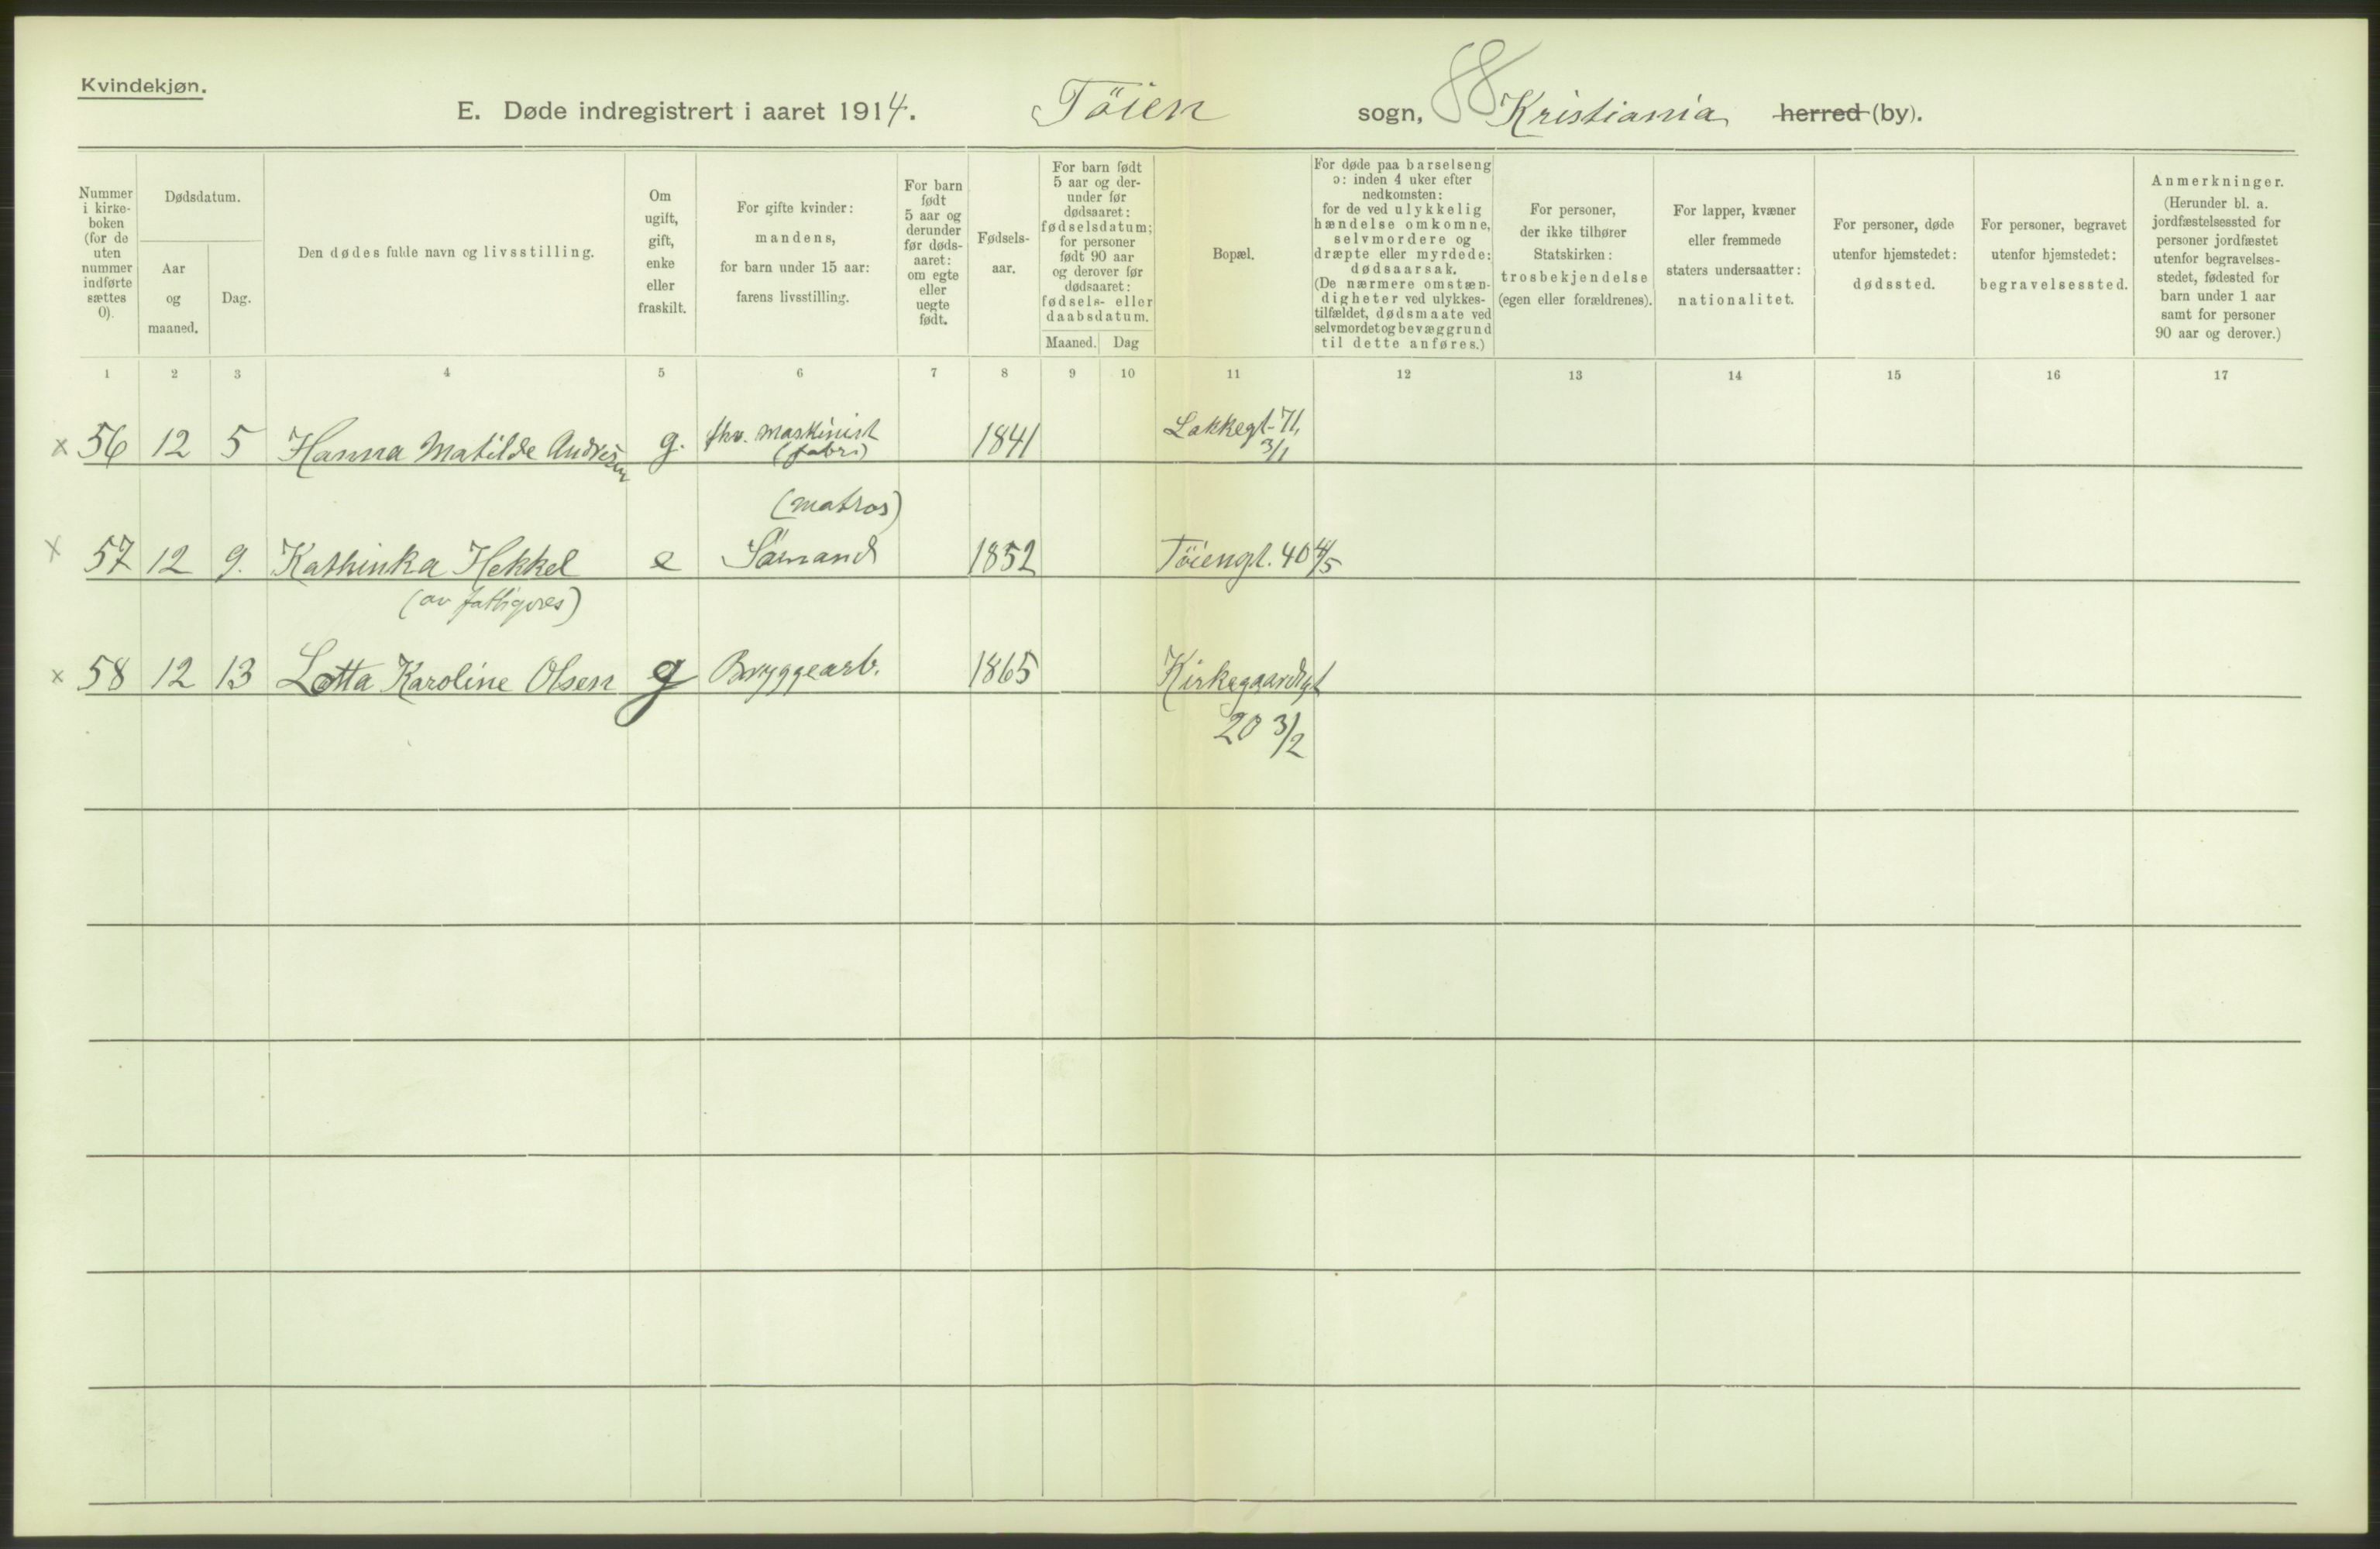 Kvindekjøn.
E. Døde indregistrert i aaret 1914. Töien sogn, 88 Kristiania herred (by).
Nummer i kirke- boken (for de uten nummer indførte sættes 0).
Dødsdatum.
Aar og maaned.
Dag.
Den dødes fulde navn og livsstilling.
Om ugift, gift, enke eller fraskilt.
For gifte kvinder: mandens, for barn under 15 aar: farens livsstilling.
For barn født 5 aar og derunder før døds- aaret: om egte eller uegte født.
Fødsels- aar.
For barn født 5 aar og der- under før dødsaaret: fødselsdatum; for personer født 90 aar og derover før dødsaaret: fødsels- eller daabsdatum.
Maaned. Dag
Bopæl.
For døde paa barselseng ɔ: inden 4 uker efter nedkomsten: for de ved ulykkelig hændelse omkomne, selvmordere og dræpte eller myrdede: dødsaarsak. (De nærmere omstæn- digheter ved ulykkes- tilfældet, dødsmaate ved selvmordet og bevæggrund til dette anføres.)
For personer, der ikke tilhører Statskirken: trosbekjendelse (egen eller forældrenes).
For lapper, kvæner eller fremmede staters undersaatter: nationalitet.
For personer, døde utenfor hjemstedet: dødssted.
For personer, begravet utenfor hjemstedet: begravelsessted.
Anmerkninger. (Herunder bl. a. jordfæstelsessted for personer jordfæstet utenfor begravelses- stedet, fødested for barn under 1 aar samt for personer 90 aar og derover.)
1 2 3 4 5 6 7 8 9 10 11 12 13 14 15 16 17
x 56 12 5 Hanna Matilde Andresen g. fhv. maskinist (fabr.) 1841 Lakkegt. 71, 3/1
(matros)
x 57 12 9. Kathinka Hekkel e Sömand 1852 Töiengt. 40 4/5
x 58 12 13 Lotta Karoline Olsen g Bryggearb. 1865 Kirkegaardsgt
20 3/2